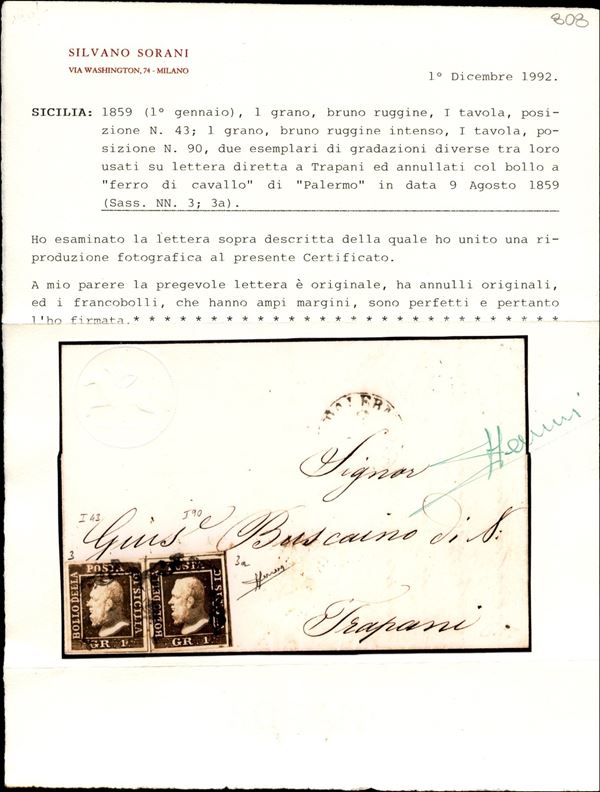 808
SILVANO SORANI
VIA WASHINGTON, 74 - MILANO
1° Dicembre 1992.
SICILIA: 1859 (1° gennaio), 1 grano, bruno ruggine, I tavola, posi-
zione N. 43; 1 grano, bruno ruggine intenso, I tavola, po-
sizione N. 90, due esemplari di gradazioni diverse tra loro
usati su lettera diretta a Trapani ed annullati col bollo a
"ferro di cavallo" di "Palermo" in data 9 Agosto 1859
(Sass. NN. 3; 3a).
Ho esaminato la lettera sopra descritta della quale ho unito una ri-
produzione fotografica al presente Certificato.
A mio parere la pregevole lettera è originale, ha annulli originali,
ed i francobolli, che hanno ampi margini, sono perfetti e pertanto
l'ho firmata.* * * * * * * * * * * * * * * * * * * * * * * * * * * *
Signor
I 43 I 90
Gius.e Buscaino di N:
3 3a
BOLLO DELLA POSTA DI SICILIA GR. 1.
BOLLO DELLA POSTA DI SICILIA GR. 1.
Trapani.